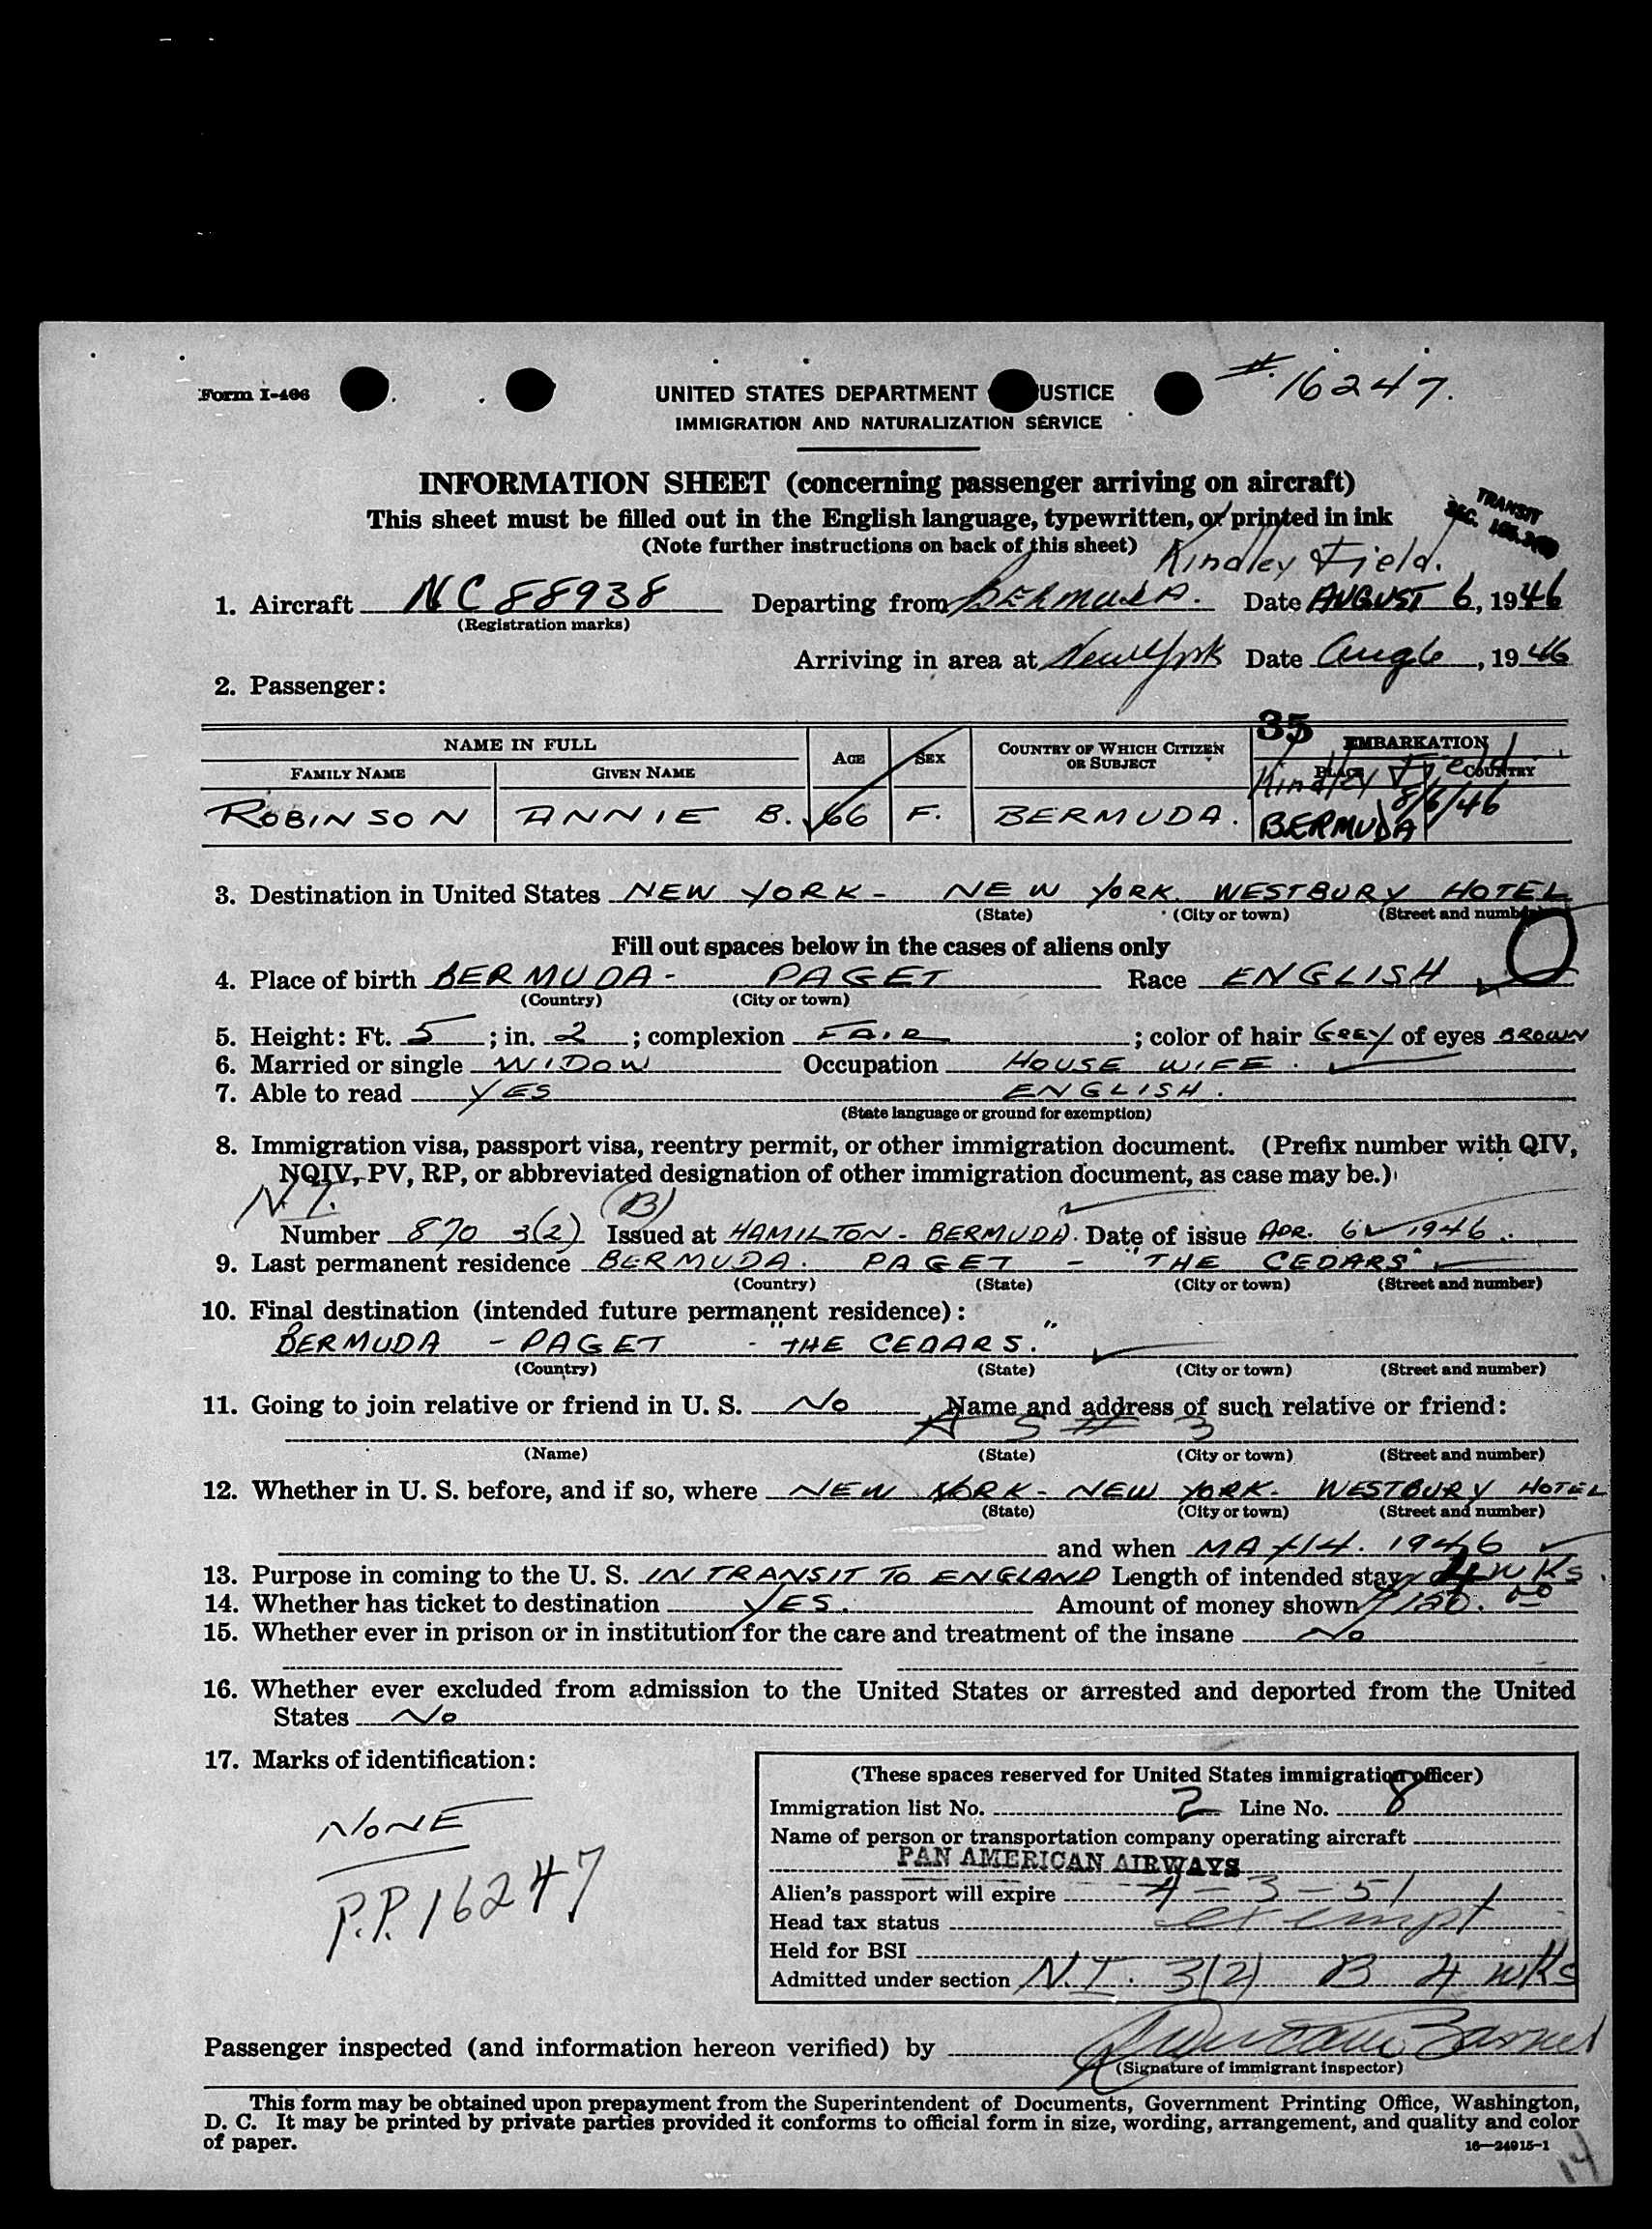 Form I-466
#16247.
UNITED STATES DEPARTMENT USTICE
IMMIGRATION AND NATURALIZATION SERVICE
INFORMATION SHEET (concerning passenger arriving on aircraft)
This sheet must be filled out in the English language, typewritten, or printed in ink
TRANSIT
(Note further instructions on back of this sheet)
Kindley Field.
1. Aircraft NC 88938 Departing from BERMUDA. Date AUGUST 6, 1946
(Registration marks)
Arriving in area at New York Date Aug 6, 1946
2. Passenger:
35
NAME IN FULL AGE SEX COUNTRY OF WHICH CITIZEN OR SUBJECT EMBARKATION
FAMILY NAME GIVEN NAME PLACE COUNTRY
Kindley Field
8/6/46
ROBINSON ANNIE B. 66 F. BERMUDA. BERMUDA
3. Destination in United States NEW YORK - NEW YORK. WESTBURY HOTEL
(State) (City or town) (Street and number)
Fill out spaces below in the cases of aliens only
4. Place of birth BERMUDA - PAGET Race ENGLISH
(Country) (City or town)
5. Height: Ft. 5 ; in. 2 ; complexion FAIR ; color of hair GREY of eyes BROWN
6. Married or single WIDOW Occupation HOUSE WIFE.
7. Able to read YES ENGLISH.
(State language or ground for exemption)
8. Immigration visa, passport visa, reentry permit, or other immigration document. (Prefix number with QIV,
NQIV, PV, RP, or abbreviated designation of other immigration document, as case may be.)
N.I. (B)
Number 870 3(2) Issued at HAMILTON - BERMUDA. Date of issue APR. 6 1946.
9. Last permanent residence BERMUDA. PAGET - "THE CEDARS"
(Country) (State) (City or town) (Street and number)
10. Final destination (intended future permanent residence):
BERMUDA - PAGET - "THE CEDARS."
(Country) (State) (City or town) (Street and number)
11. Going to join relative or friend in U. S. No Name and address of such relative or friend:
A S # 3
(Name) (State) (City or town) (Street and number)
12. Whether in U. S. before, and if so, where NEW YORK - NEW YORK. WESTBURY HOTEL
(State) (City or town) (Street and number)
and when MAY 14. 1946
13. Purpose in coming to the U. S. IN TRANSIT TO ENGLAND Length of intended stay 4 WKS.
14. Whether has ticket to destination YES. Amount of money shown $150.00
15. Whether ever in prison or in institution for the care and treatment of the insane No
16. Whether ever excluded from admission to the United States or arrested and deported from the United
States No
17. Marks of identification:
NONE
P.P. 16247
(These spaces reserved for United States immigration officer)
Immigration list No. 2 Line No. 8
Name of person or transportation company operating aircraft
PAN AMERICAN AIRWAYS
Alien's passport will expire 4-3-51
Head tax status exempt
Held for BSI
Admitted under section N.I. 3(2) B 4 wks
Passenger inspected (and information hereon verified) by
(Signature of immigrant inspector)
This form may be obtained upon prepayment from the Superintendent of Documents, Government Printing Office, Washington,
D. C. It may be printed by private parties provided it conforms to official form in size, wording, arrangement, and quality and color
of paper.
16—24915-1
14